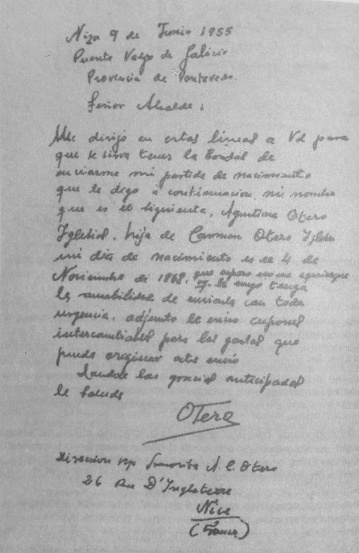 Niza 9 de Junio 1955
Puente Valga de Galicia
Provencia de Pontevedra
Señor Alcalde:
Me dirigo en estas lineas a Vd para
que se sirva tener la bondad de
enviarme mi partida de nacimiento
que le digo a continuacion mi nombre
que es el siguiente, Agustina Otero
Iglesias, hija de Carmen Otero Iglesias
mi dia de nacimiento es el 4 de
Noviembre de 1868, que espero no me
y le ruego tenga
la amabilidad de enviarla con toda
urgencia. adjunto le envio cupones
intercambiables para los gastos que
puede originar este envio
Dandole las gracias anticipadas
le saluda
Otero
Direccion Señorita A. C. Otero
26 Rue D'Ingleterre
Nice
(France)